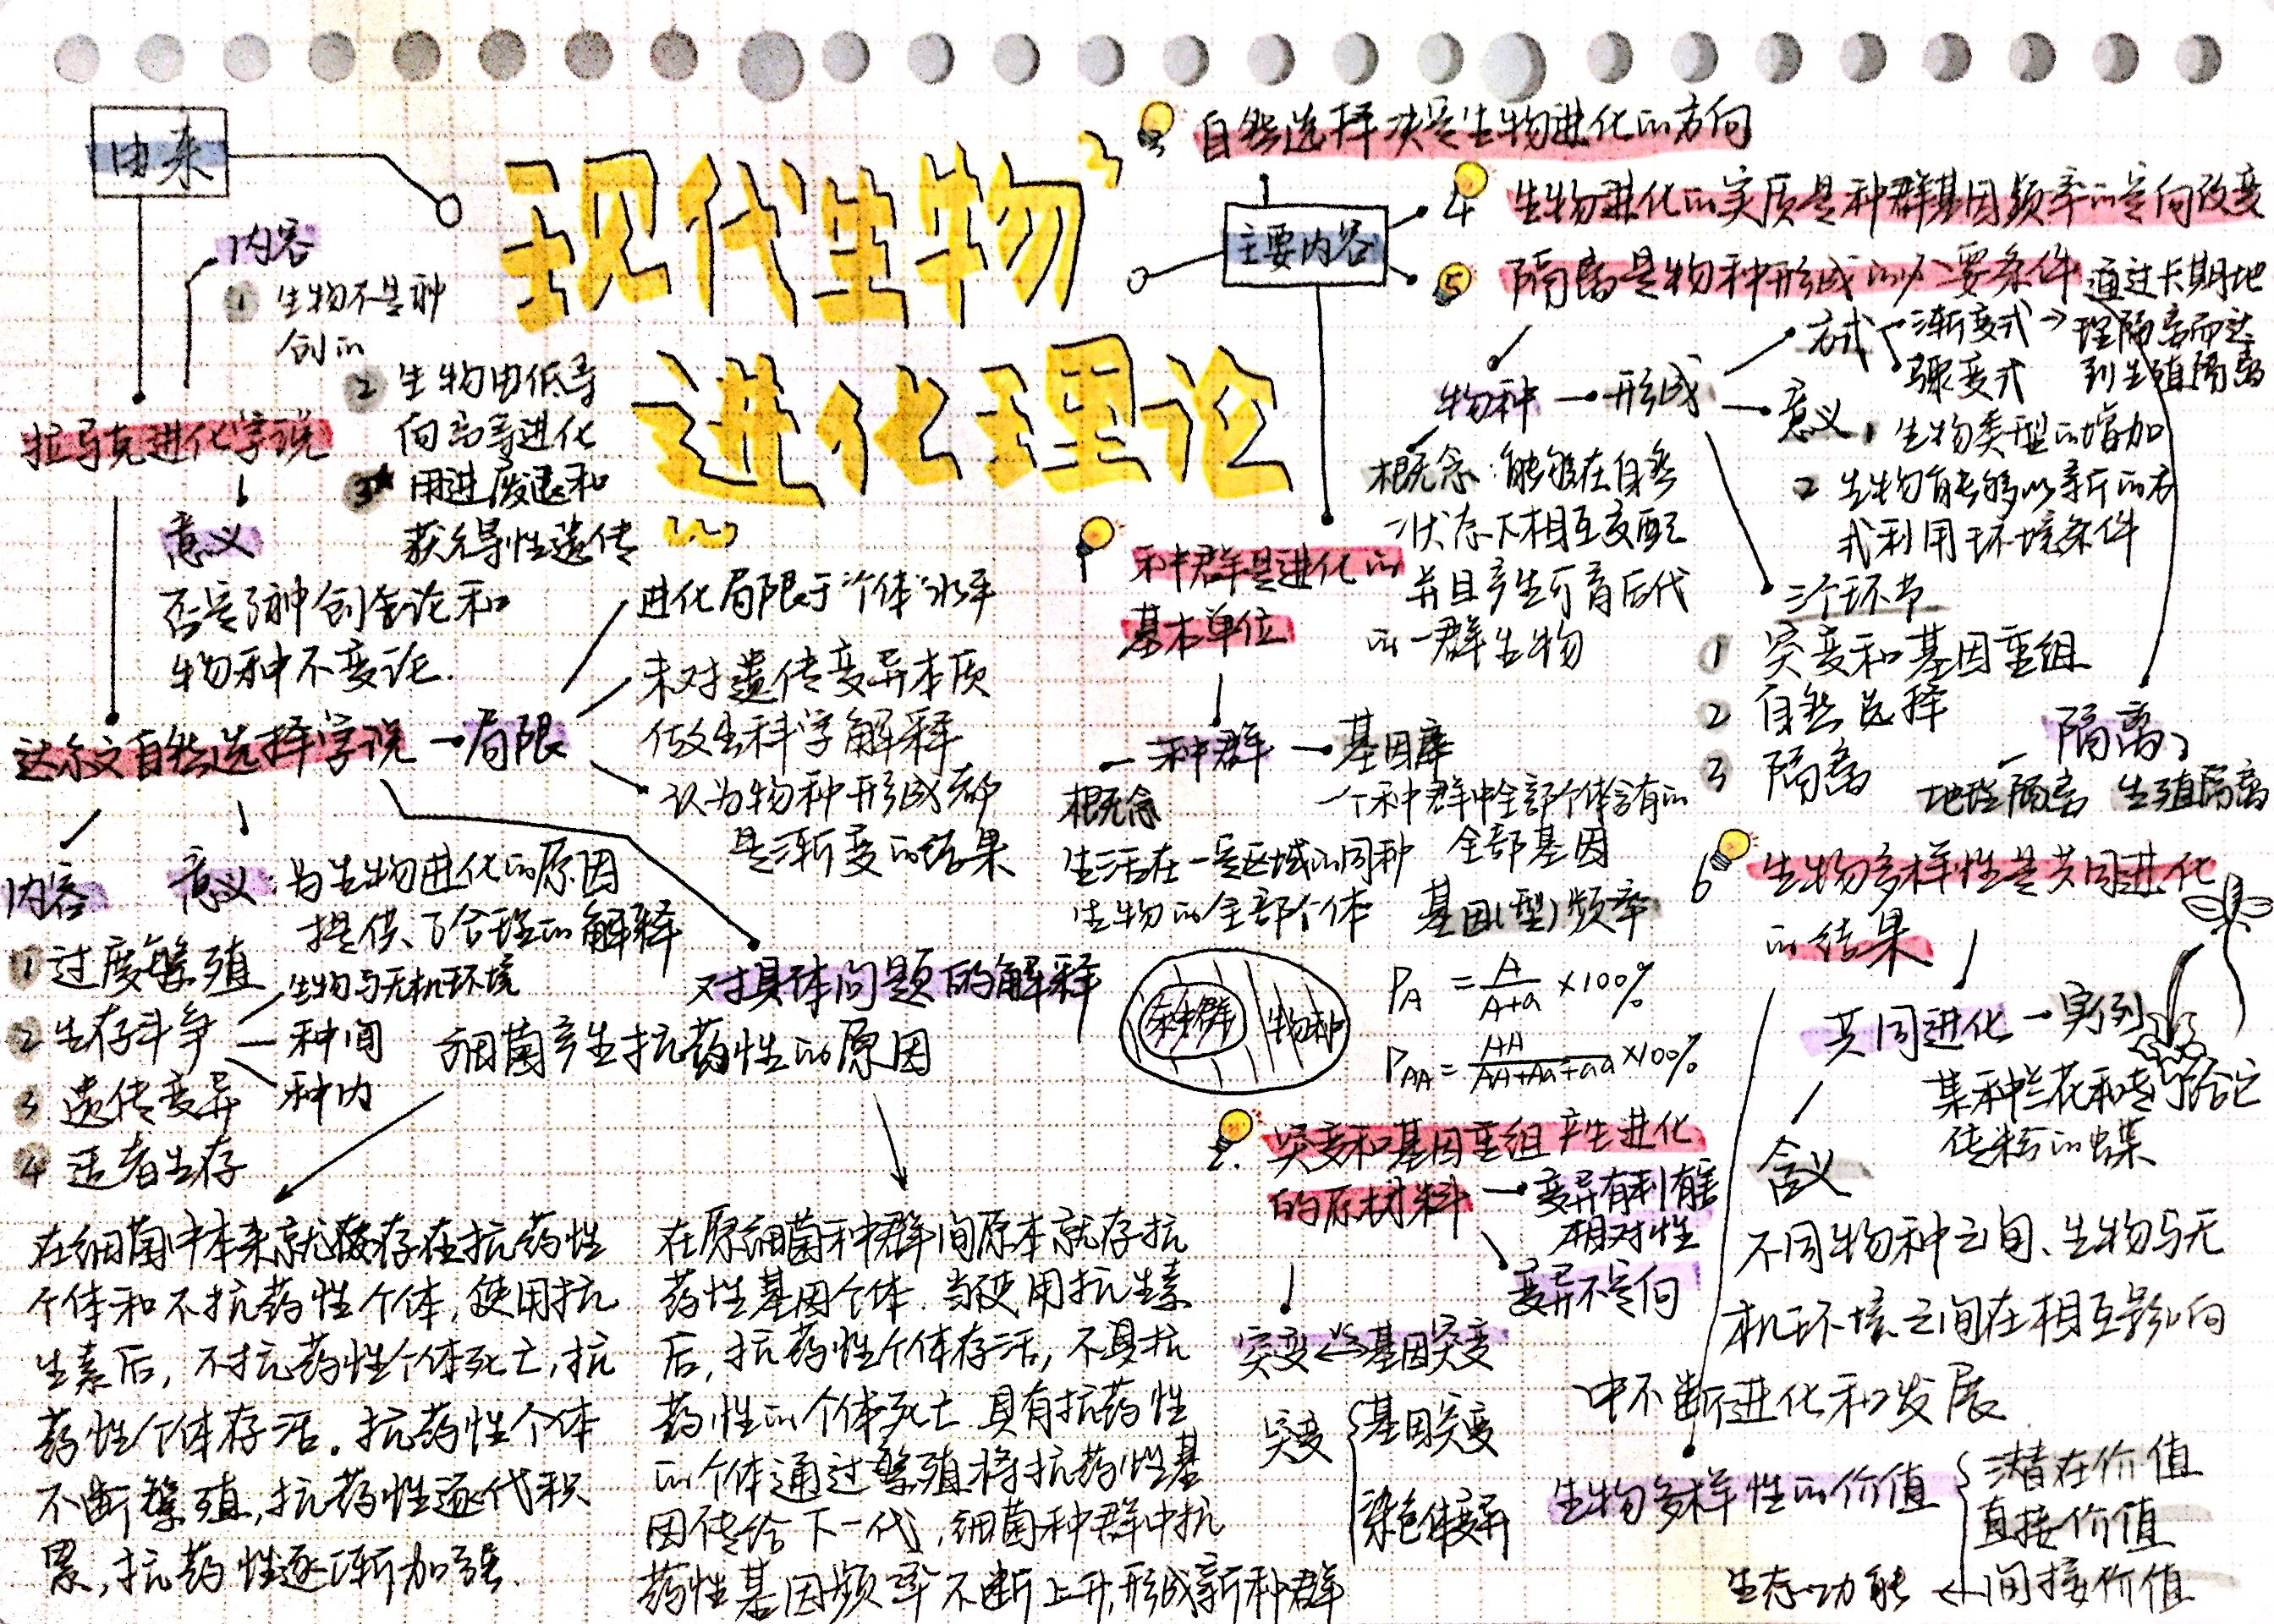 现代生物
进化理论
由来
拉马克进化学说
内容
1 生物不是神
创的
2 生物由低等
向高等进化
3 用进废退和
获得性遗传
意义
否定了神创造论和
物种不变论.
达尔文自然选择学说→局限
进化局限于"个体"水平
未对遗传变异本质
做出科学解释
认为物种形成都
是渐变的结果
内容
1 过度繁殖
2 生存斗争
生物与无机环境
种间
种内
3 遗传变异
4 适者生存
意义:为生物进化的原因
提供了合理的解释
对具体问题的解释
细菌产生抗药性的原因
在细菌中本来就存在抗药性
个体和不抗药性个体,使用抗
生素后,不抗药性个体死亡,抗
药性个体存活。抗药性个体
不断繁殖,抗药性逐代积
累,抗药性逐渐加强.
在原细菌种群间原本就存抗
药性基因个体.当使用抗生素
后,抗药性个体存活,不具抗
药性的个体死亡 具有抗药性
的个体通过繁殖将抗药性基
因传给下一代,细菌种群中抗
药性基因频率不断上升,形成新种群
主要内容
1 种群是进化的
基本单位
种群→基因库
概念
生活在一定区域的同种
生物的全部个体
一个种群中全部个体含有的
全部基因
基因(型)频率
种群 物种
PA = A/A+a ×100%
PAA = AA/AA+Aa+aa ×100%
2. 突变和基因重组产生进化
的原材料→变异有利有害
相对性
变异不定向
突变 基因突变
突变{基因突变
染色体变异
3 自然选择决定生物进化的方向
4 生物进化的实质是种群基因频率的定向改变
5 隔离是物种形成的必要条件
物种→形成
概念:能够在自然
状态下相互交配
并且产生可育后代
的一群生物
方式 渐变式→通过长期地
理隔离而达
到生殖隔离
骤变式
意义 1 生物类型的增加
2 生物能够以新的方
式利用环境条件
三个环节
1 突变和基因重组
2 自然选择
3 隔离
隔离
地理隔离 生殖隔离
6 生物多样性是共同进化
的结果
共同进化→实例
某种兰花和专门给它
传粉的蝶
含义
不同物种之间、生物与无
机环境之间在相互影响
中不断进化和发展
生物多样性的价值{潜在价值
直接价值
生态功能←间接价值